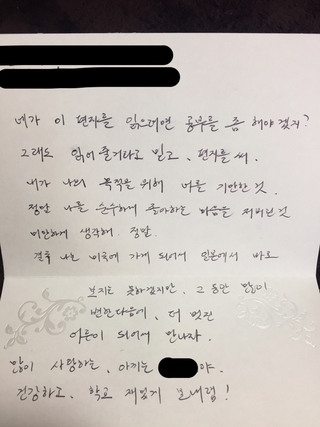 네가 이 편지를 읽으려면 공부를 좀 해야겠지?
그래도 읽어줄거라고 믿고, 편지를 써.
내가 나의 목적을 위해 너를 기만한 것,
정말 나를 순수하게 좋아하는 마음을 저버린 것
미안하게 생각해. 정말.
결국 나는 미국에 가게 되어서 일본에서 바로
보지는 못하겠지만, 그 동안 많이
변한 다음에, 더 멋진
어른이 되어서 만나자.
많이 사랑하는, 아끼는 야.
건강하고, 학교 재밌게 보내렴!